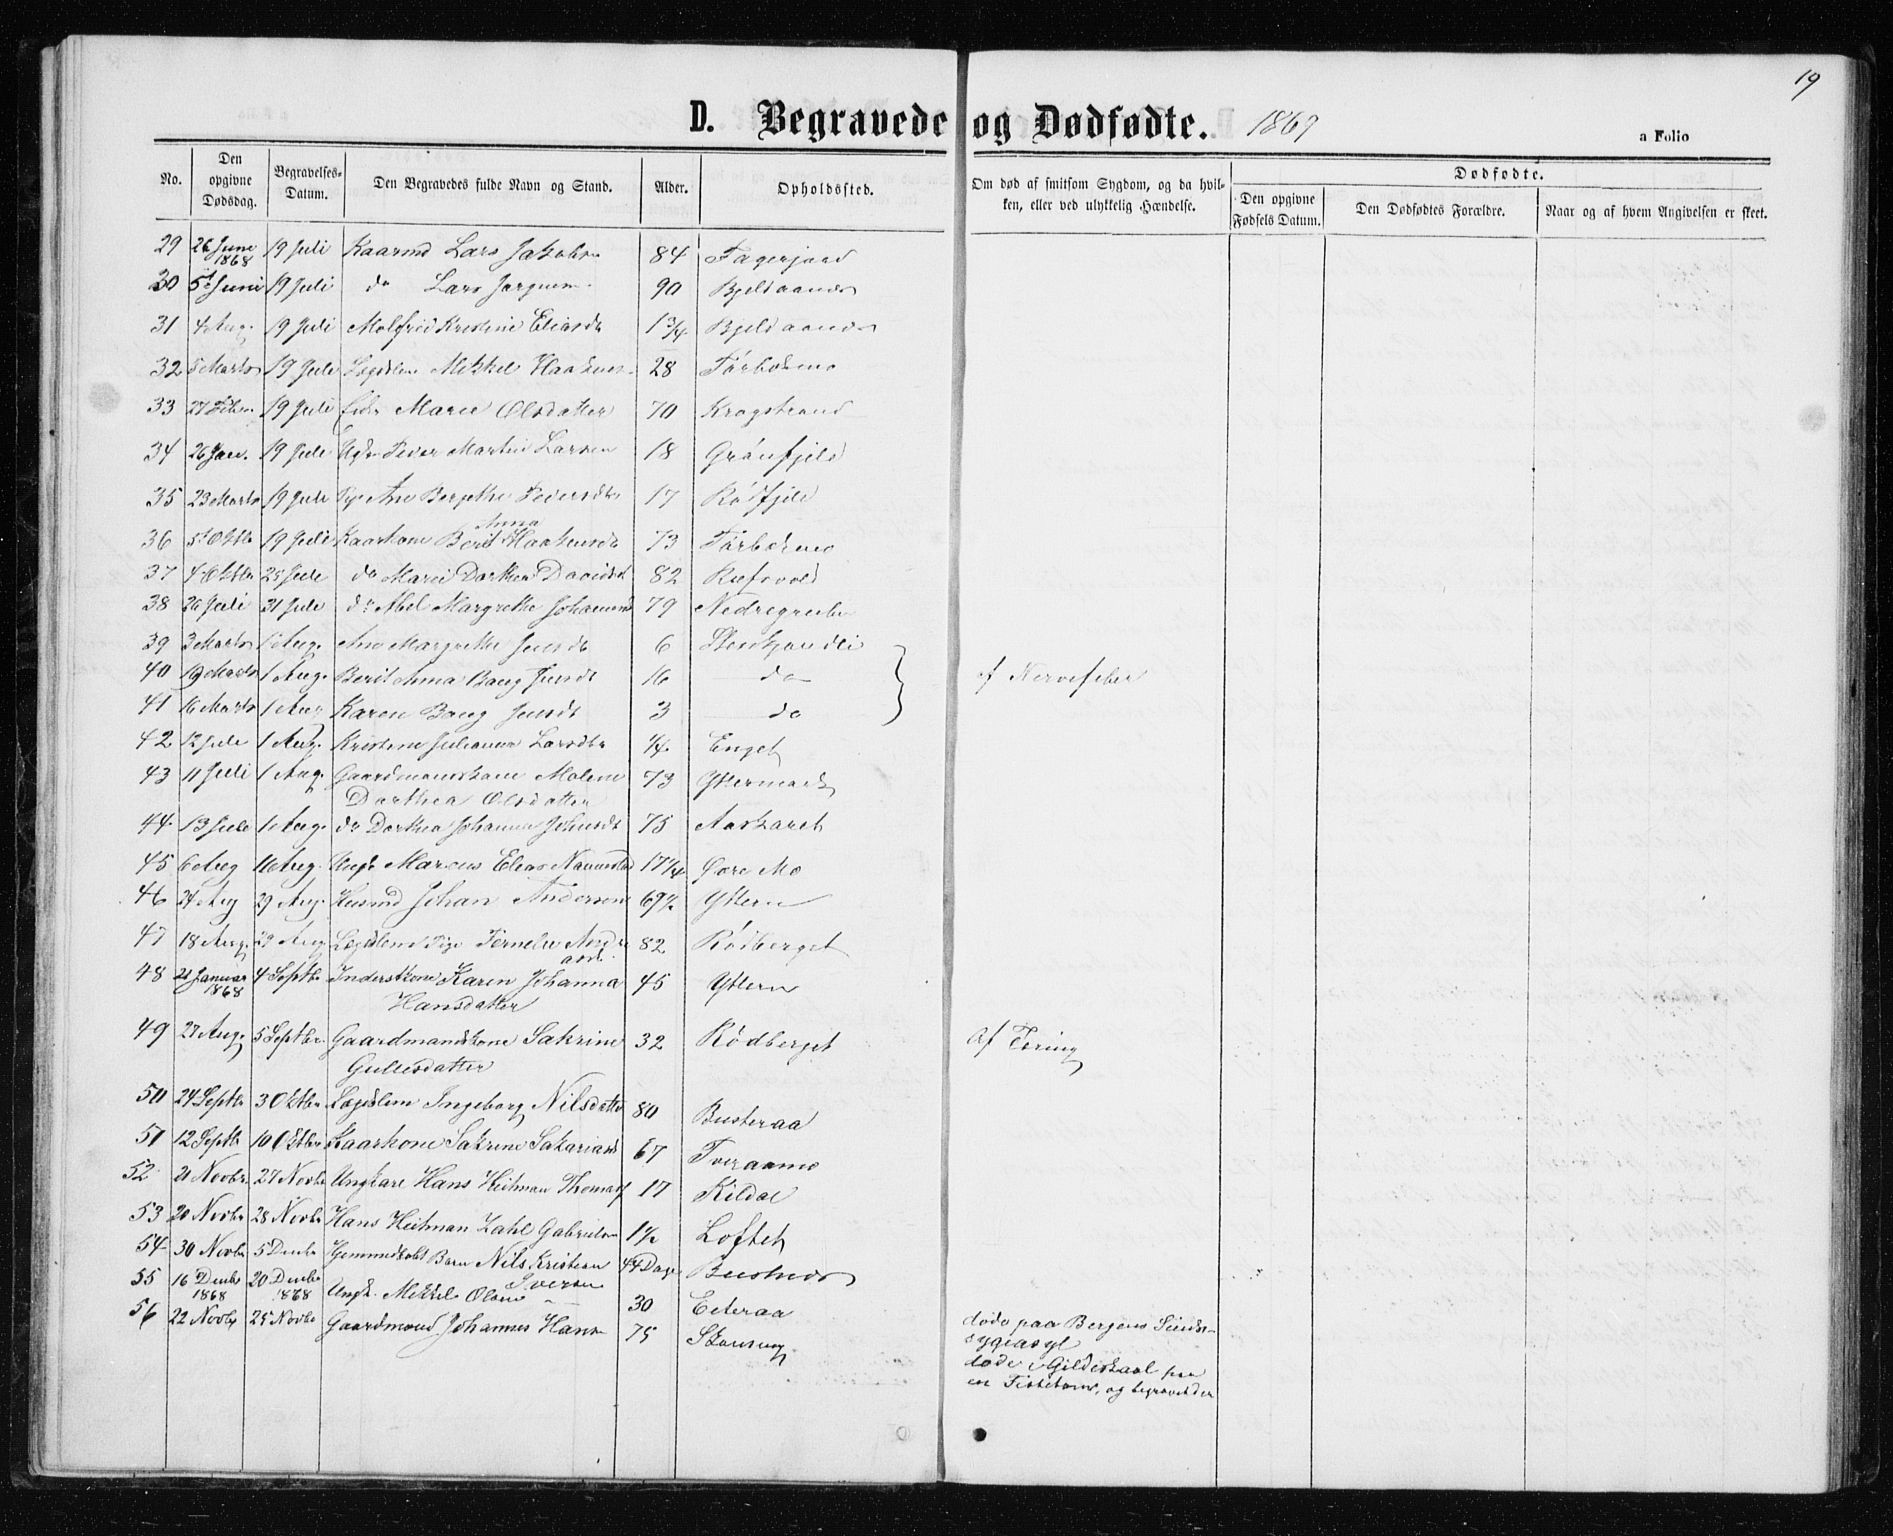 19
D. Begravede og Dødfødte. 1869
a Folio
No. Den opgivne Dødsdag. Begravelses-Datum. Den Begravedes fulde Navn og Stand. Alder. Opholdssted. Om død af smitsom Sygdom, og da hvilken, eller ved ulykkelig Hændelse. Dødfødte. Den opgivne Fødsels Datum. Den Dødfødtes Forældre. Naar og af hvem Angivelsen er skeet.
29 26 June 1868 19 Juli Kaarmd Lars Jakobsn 84 Fagerjord
30 5t Juni 19 Juli do Lars Jørgensn 90 Bjeldaanes
31 4 Aug. 19 Juli Molfrid Kristine Eliasdt 1 3/4 Bjeldaanes
32 8 Marts 19 Juli Lægdslem Mikkel Haakens. 28 Førbekmo
33 27 Febr. 19 Juli Marie Olsdatter 70 Kragstrand
34 26 Jan. 19 Juli Peder Martin Larsen 18 Grønfjeld
35 23 Marts 19 Juli Pige Ane Bergethe Pedersdtr 17 Rødfjeld
36 5t Oktb 19 Juli Kaarkone Berit Anna Haakensdt 73 Førbekmo
37 4 Oktbr 25 Juli do Marie Dorthea Davidsdt 82
38 26 Juli 31 Juli do Abel Margrethe Johannesd 79 Nedregrube
39 3 Marts 1 Aug. Ane Margrethe Jensdt 6
40 19 Marts 1 Aug. Berit Anna Baug Jensdt 16 do af Nervefeber
41 16 Marts 1 Aug Karen Baug Jensdt 3 do
42 12 Juli 1 Aug. Kristine Julianna Larsdtr 1/4 Enget
43 11 Juli 1 Aug. Gaardmandskone Malene 73 Yttermark
Dorthea Olsdatter
44 13 Juli 1 Aug. do Dorthea Johanna Johnsdt 75 Aaskaret
45 6 Aug 11 Aug. Ungk. Marcus Elias Nannestad 17 1/4 Øvre Mo
46 24 Aug 29 Aug. Husmd Johan Andersen 69 1/2 Yttern
47 18 Aug. 29 Aug Lægdslem Pige Pernelie Andre 82 Rødberget
asdt.
48 21 Januar 1868 4 Septbr Inderstkone Karen Johanna 45 Yttern
Hansdatter
49 27 Aug. 5 Septbr. Gaardmandskone Sakrine 32 Rødberget af Tæring
Gullesdatter
50 24 Septbr 3 Oktbr Lægdslem Ingeborg Nilsdatter 80 Busteraa
51 12 Septb 10 Oktbr Kaarkone Sakrine Sakariasd 67 Tveraamo
52 21 Novbr. 27 Novbr Ungkare Hans Heitman Thomas 17 Kildal
53 20 Novbr 28 Novbr Hans Heitman Zahl Gabrielsen 1 1/2 Loftet
54 30 Novbr 5 Decbr Hjemmedøbt Barn Nils Kristian 44 Dage Bustnes
Iversen
55 16 Decbr 1868 20 Decbr 1868 Ungk. Mikkel Olsen 30 Eiteraa døde paa Bergens Sindssygeasyl
56 22 Novbr 25 Novbr Gaardmand Johannes Hansn 75 Skonseng døde i Gildeskaal paa
en Fisketour, og begravet der